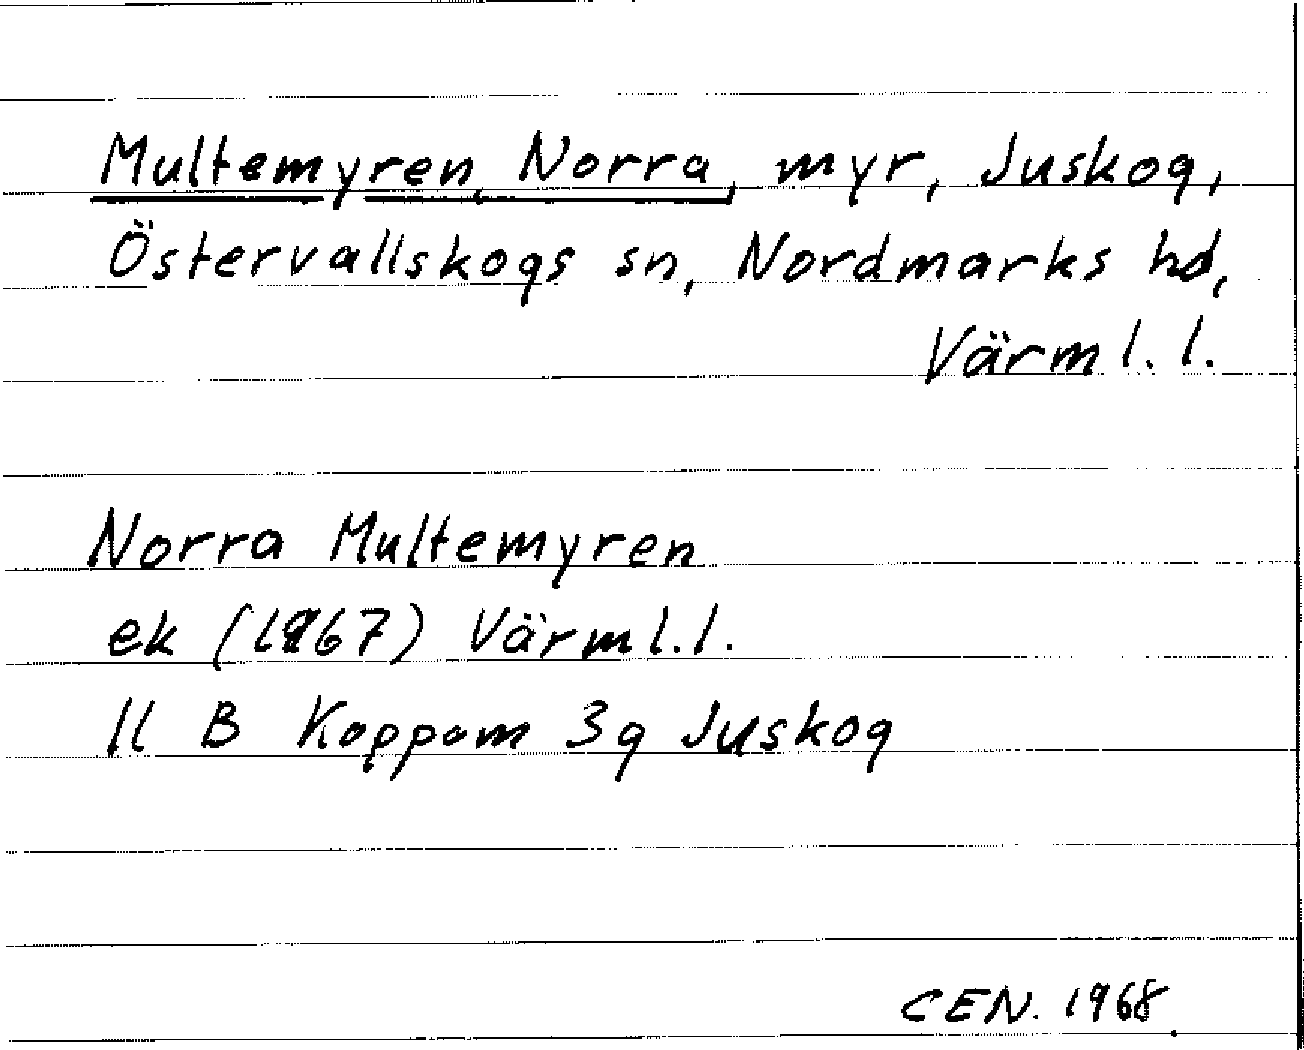 Multemyren, Norra, myr, Juskog,
Östervallskogs sn, Nordmarks hd,
Värml. l.
Norra Multemyren
ek (1967) Värml. l.
11 B Koppom 3g Juskog
CEN. 1968.